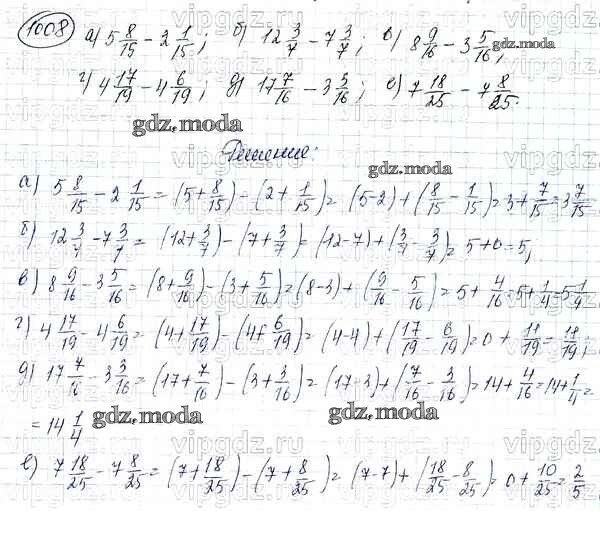 1008 а) 5 8/15 − 2 1/15; б) 12 3/7 − 7 3/7; в) 8 9/16 − 3 5/16;
г) 4 17/19 − 4 6/19; д) 17 7/16 − 3 3/16; е) 7 18/25 − 7 8/25.
Решение:
а) 5 8/15 − 2 1/15 = (5 + 8/15) − (2 + 1/15) = (5−2) + (8/15 − 1/15) = 3 + 7/15 = 3 7/15
б) 12 3/7 − 7 3/7 = (12 + 3/7) − (7 + 3/7) = (12−7) + (3/7 − 3/7) = 5 + 0 = 5,
в) 8 9/16 − 3 5/16 = (8 + 9/16) − (3 + 5/16) = (8−3) + (9/16 − 5/16) = 5 + 4/16 = 5 + 1/4 = 5 1/4
г) 4 17/19 − 4 6/19 = (4 + 17/19) − (4 + 6/19) = (4−4) + (17/19 − 6/19) = 0 + 11/19 = 11/19;
д) 17 7/16 − 3 3/16 = (17 + 7/16) − (3 + 3/16) = (17−3) + (7/16 − 3/16) = 14 + 4/16 = 14 + 1/4 =
= 14 1/4
е) 7 18/25 − 7 8/25 = (7 + 18/25) − (7 + 8/25) = (7−7) + (18/25 − 8/25) = 0 + 10/25 = 2/5
gdz.moda
vipgdz.ru